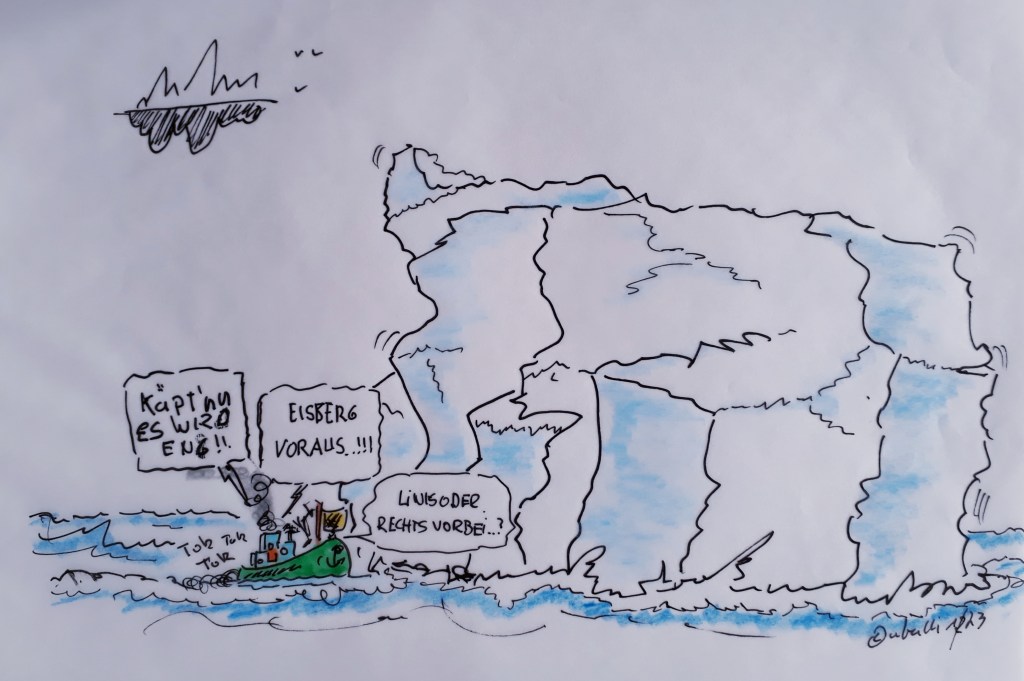 Käpt'nn
ES WIRD
ENG!!.
EISBERG
VORAUS..!!!!
LiNKSODER
RECHTS VORBEi..?
Tok Tok
Tok